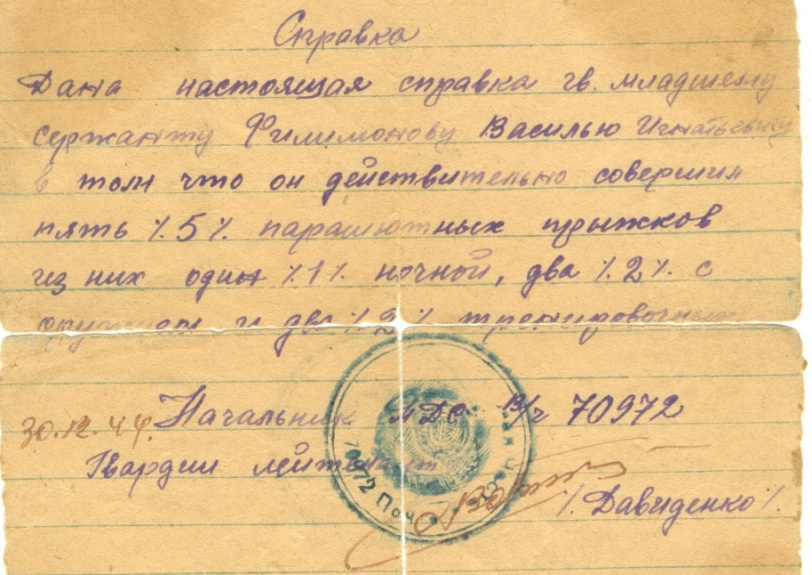 Справка
Дана настоящая справка гв. младшему
сержанту Филимонову Василью Игнатьевичу
в том что он действительно совершил
пять %5% парашютных прыжков
из них один %1% ночной, два %2% с
оружием и два %2% тренировочных
30.12.44г. Начальник ПДС в/ч 70972
Гвардии лейтенант
/.Давиденко/.
70972 Поч